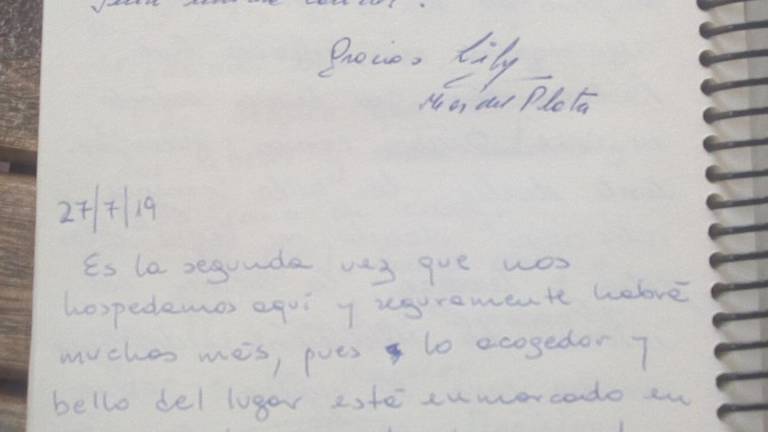 Gracias Lily
Mar del Plata
27/7/19
Es la segunda vez que nos
hospedamos aquí y seguramente habrá
muchas más, pues lo acogedor y
bello del lugar está enmarcado en